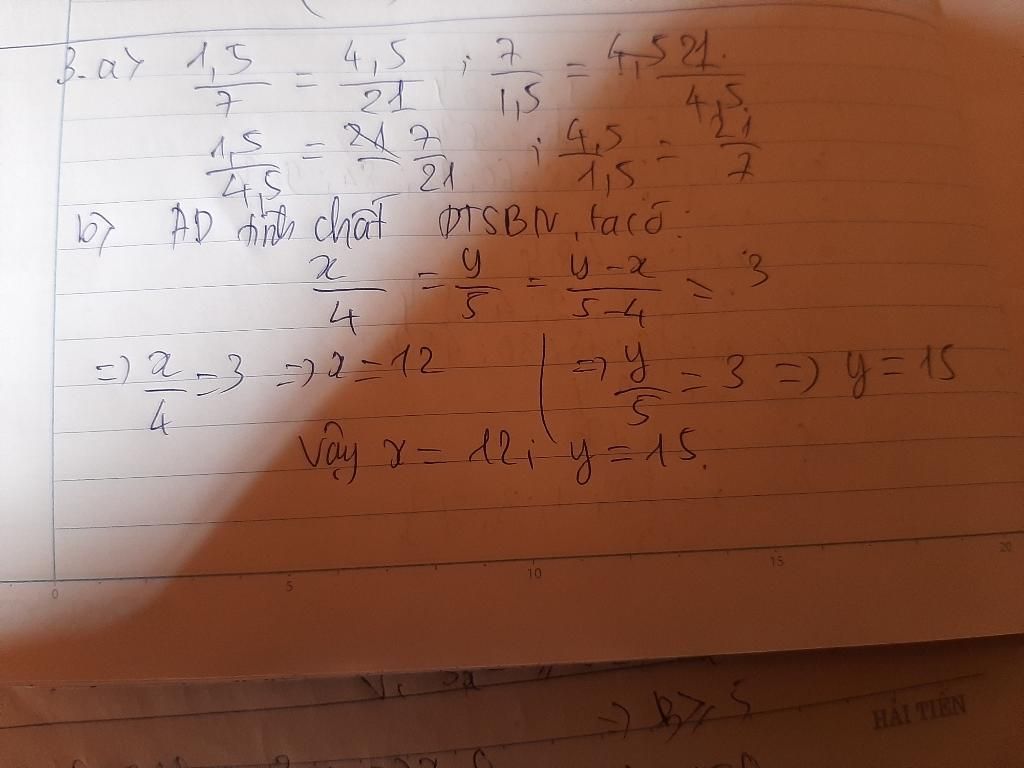 3.a) 1,5/7 = 4,5/21 ; 7/1,5 = 21/4,5.
1,5/4,5 = 7/21 ; 4,5/1,5 = 21/7
b) AD tính chất DTSBN, ta có:
x/4 = y/5 = y-x/5-4 = 3
=> x/4 = 3 => x = 12 | => y/5 = 3 => y = 15
Vậy x = 12; y = 15.
0 5 10 15 20
=> B ≥ 5
HẢI TIẾN